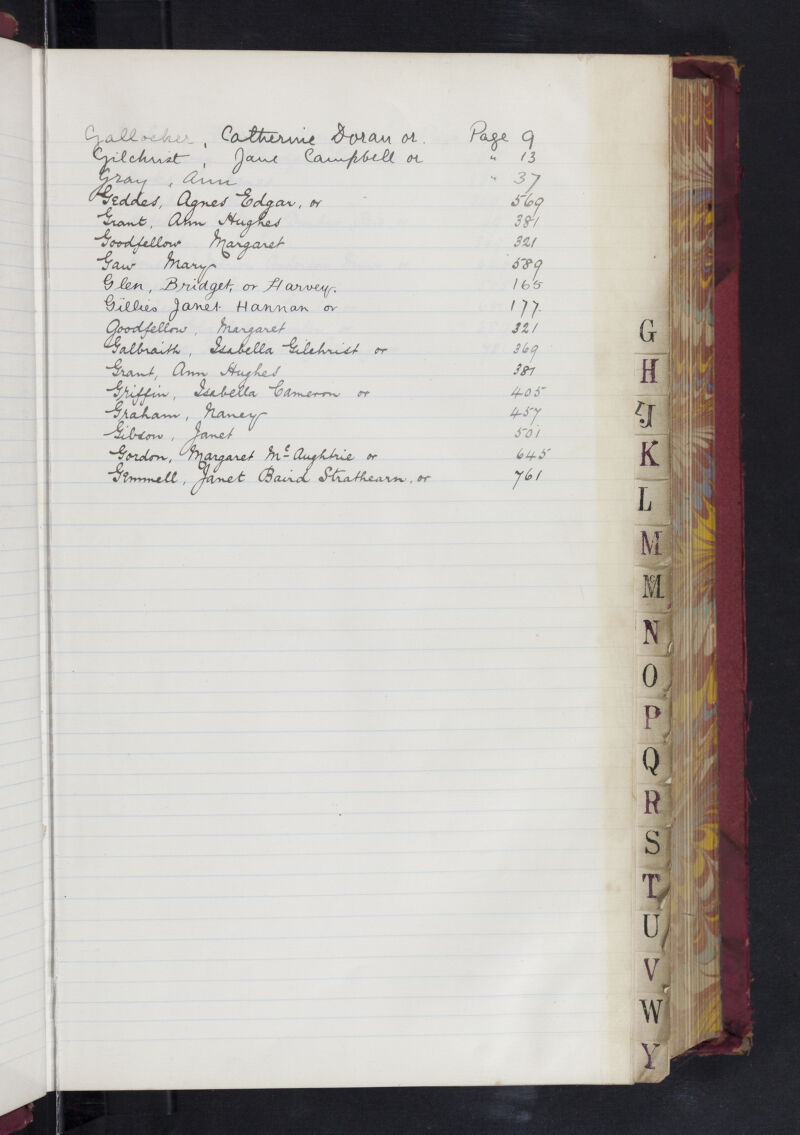 Gallocher, Catherine Doran or. Page 9
Gilchrist, Jane Campbell or " 13
Gray, Ann " 37
Geddes, Agnes Edgar, or 569
Grant, Ann Hughes 381
Goodfellow Margaret 321
Gaw Mary 589
Glen, Bridget, or Harvey. 165
Gillies Janet Hannan or 177.
Goodfellow, Margaret 321
Galbraith, Isabella Gilchrist or 369
Grant, Ann Hughes 381
Griffin, Isabella Cameron or 405
Graham, Nancy 457
Gibson, Janet 501
Gordon, Margaret Mc Aughtrie or 645
Gemmell, Janet Baird Strathearn, or 761
G
H
IJ
K
L
M
Mc
N
O
P
Q
R
S
T
U
V
W
Y